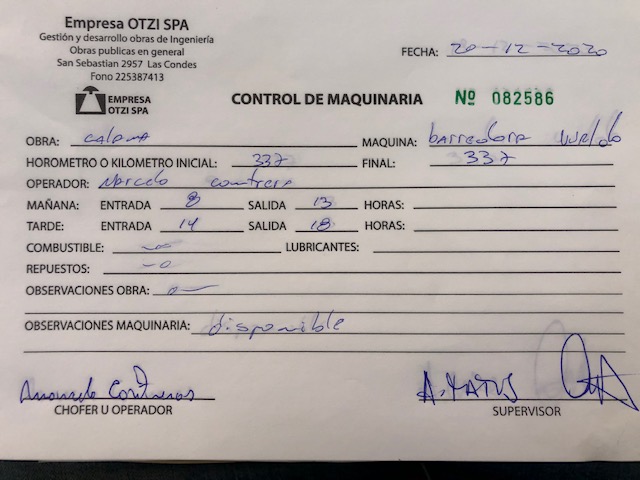 Empresa OTZI SPA
Gestión y desarrollo obras de Ingeniería
Obras publicas en general
San Sebastian 2957 Las Condes
Fono 225387413
EMPRESA
OTZI SPA
FECHA: 20-12-2020
CONTROL DE MAQUINARIA Nº 082586
OBRA: Calama MAQUINA: barredora
HOROMETRO O KILOMETRO INICIAL: 337 FINAL: 337
OPERADOR: Marcelo contrera
MAÑANA: ENTRADA 8 SALIDA 13 HORAS:
TARDE: ENTRADA 14 SALIDA 18 HORAS:
COMBUSTIBLE: LUBRICANTES:
REPUESTOS:
OBSERVACIONES OBRA:
OBSERVACIONES MAQUINARIA: disponible
CHOFER U OPERADOR SUPERVISOR